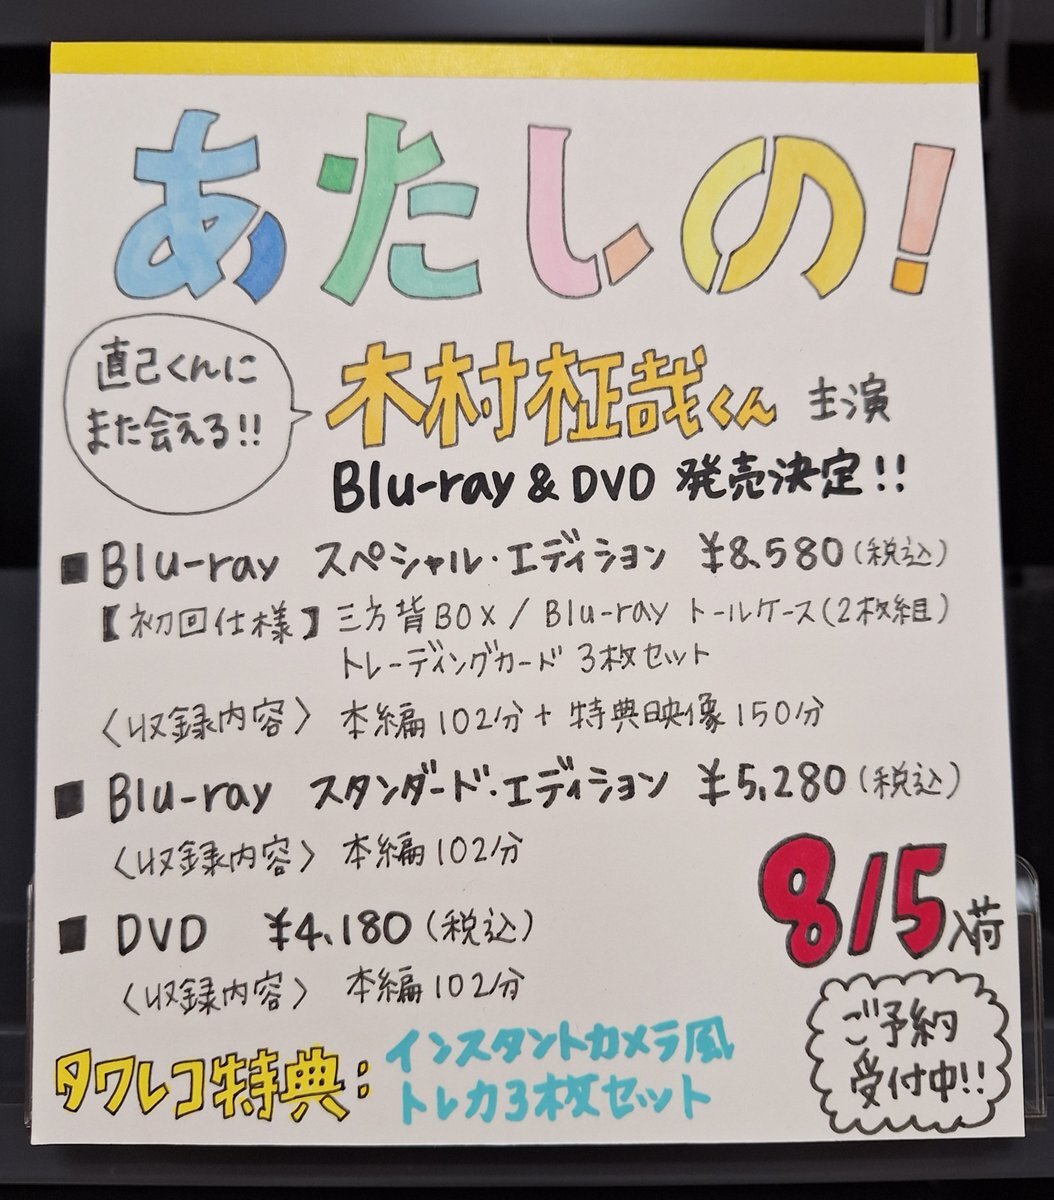 あたしの!
直己くんに
また会える!!
木村柾哉くん 主演
Blu-ray & DVD 発売決定!!
■ Blu-ray スペシャル・エディション ¥8,580(税込)
【初回仕様】三方背BOX / Blu-ray トールケース(2枚組)
トレーディングカード 3枚セット
〈収録内容〉 本編102分 + 特典映像150分
■ Blu-ray スタンダード・エディション ¥5,280(税込)
〈収録内容〉 本編102分
■ DVD ¥4,180(税込)
〈収録内容〉 本編102分
8/5入荷
ご予約
受付中!!
タワレコ特典:インスタントカメラ風
トレカ3枚セット